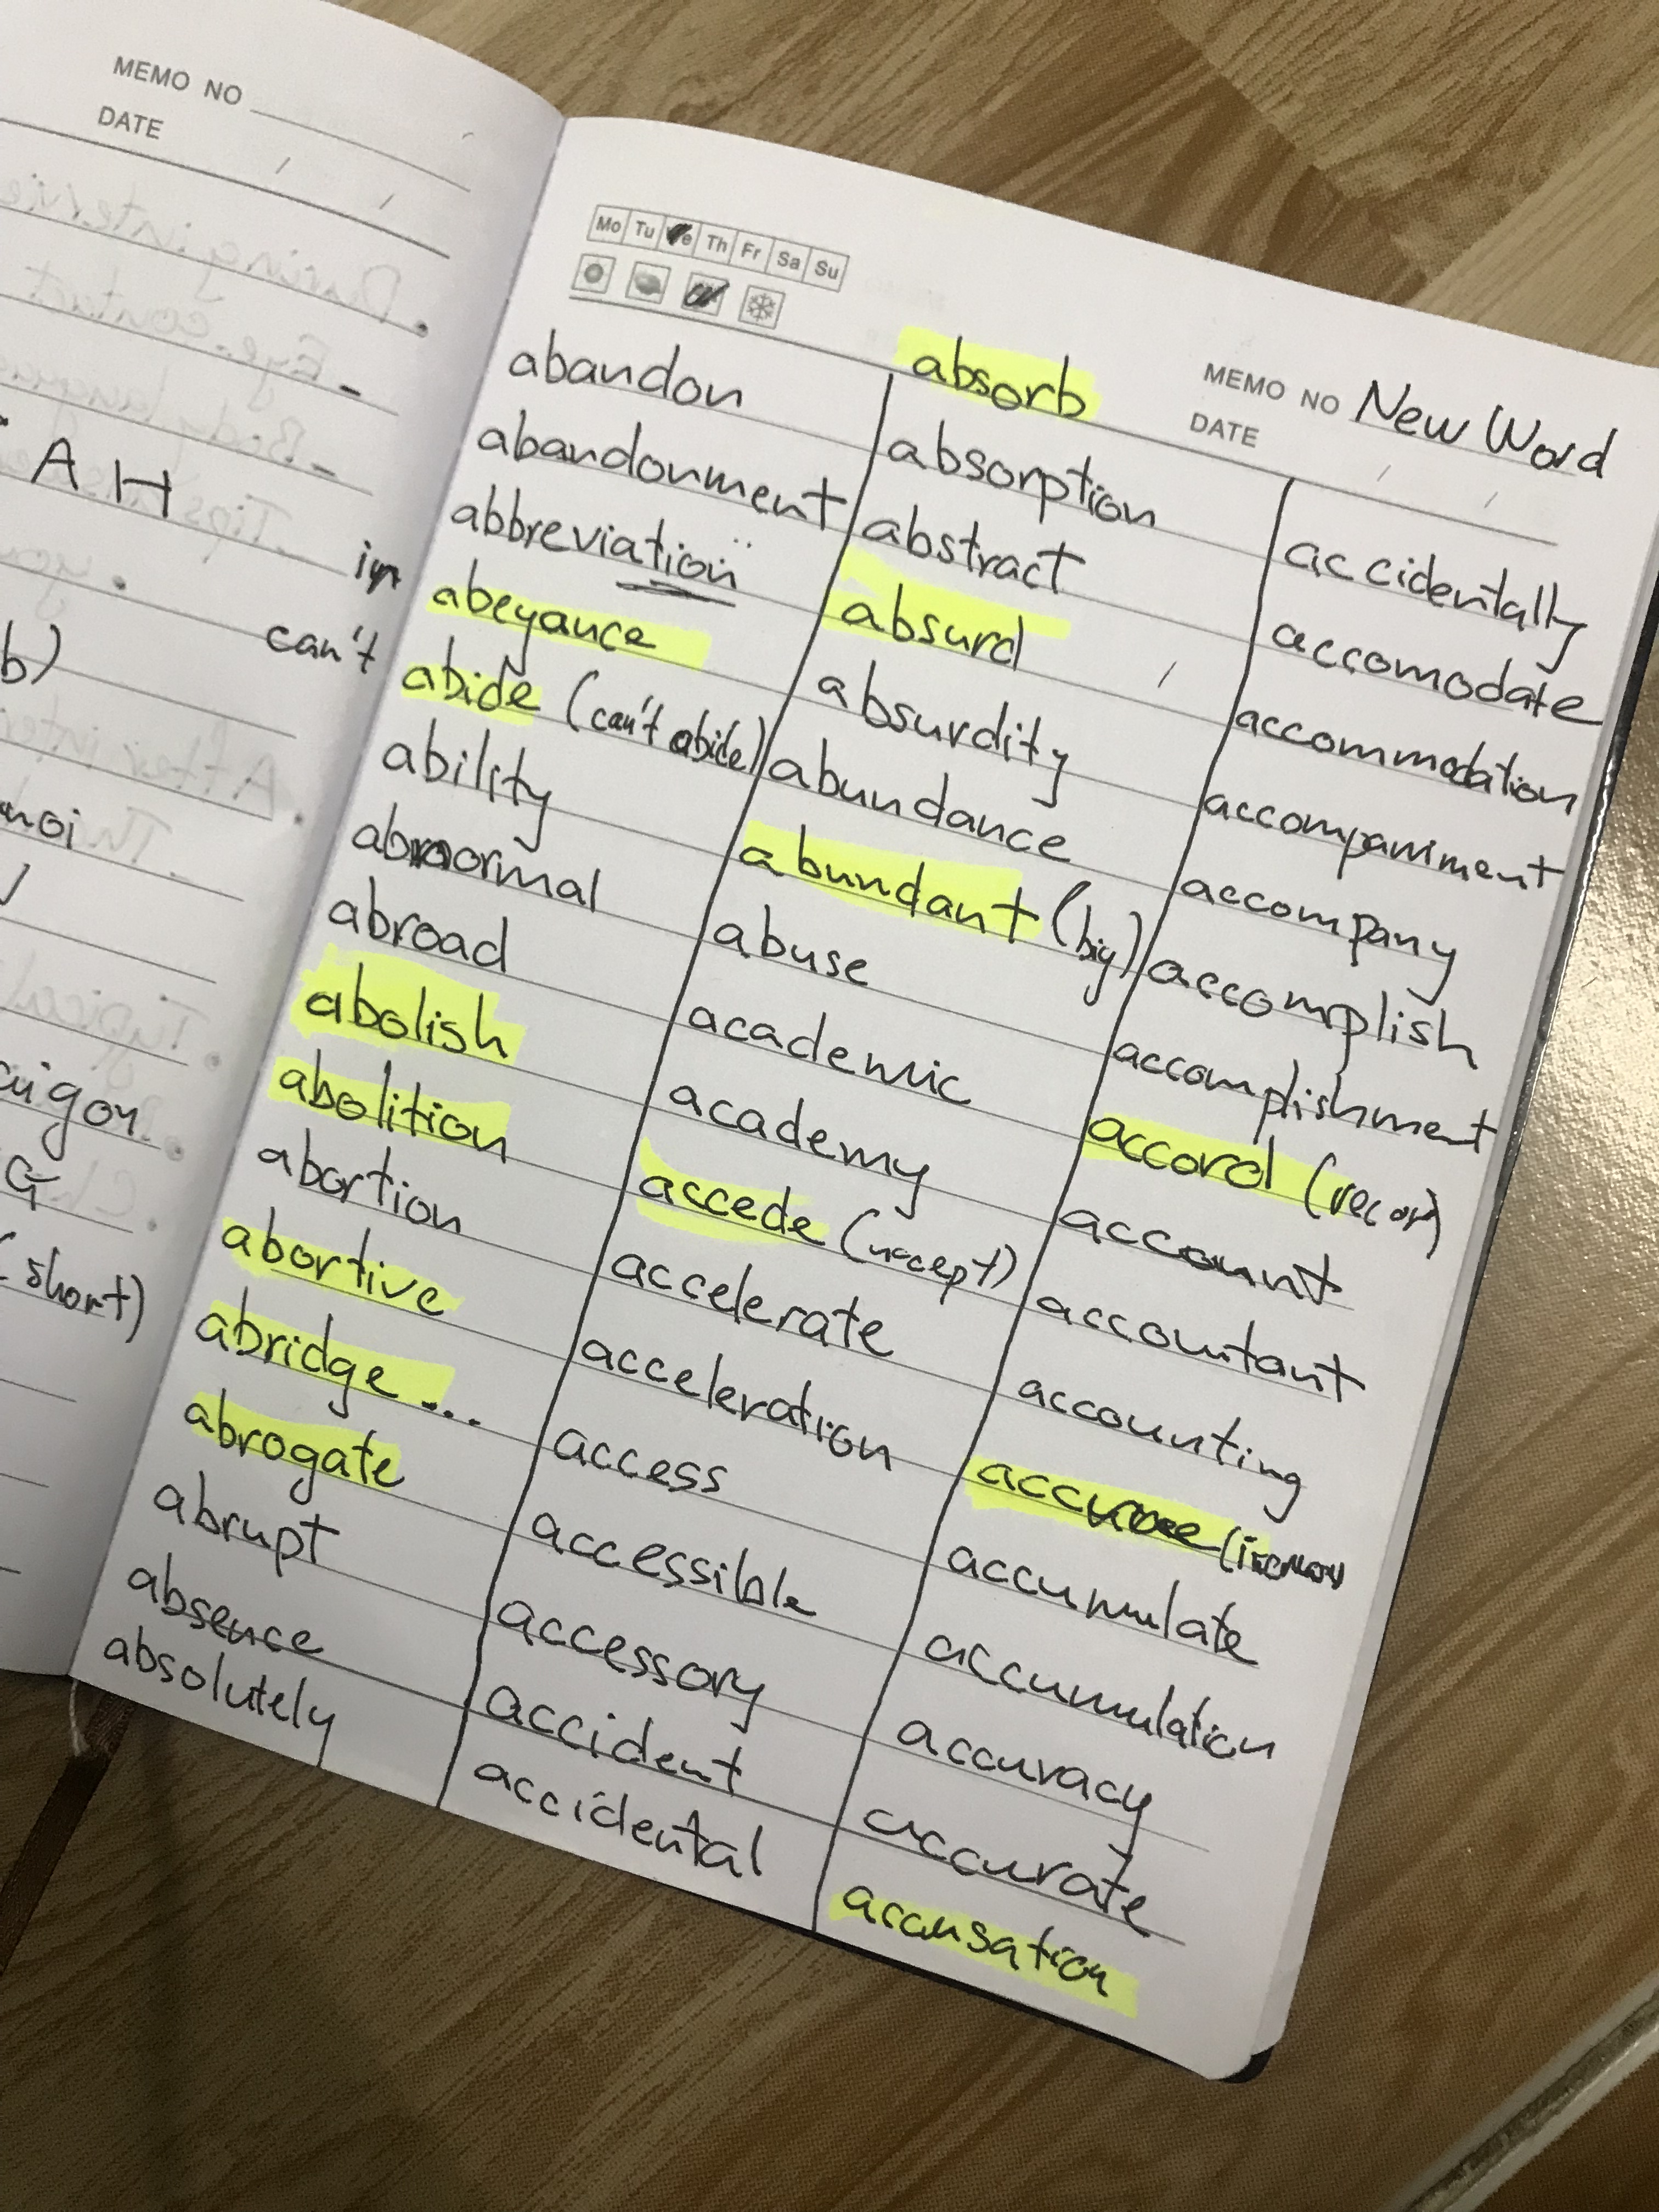 MEMO NO
DATE
AH
in
can't
b)
noi
aigon
G
(short)
Mo Tu We Th Fr Sa Su
MEMO NO New Word
DATE
abandon
abandonment
abbreviation
abeyance
abide (can't abide)
ability
abnormal
abroad
abolish
abolition
abortion
abortive
abridge...
abrogate
abrupt
absence
absolutely
absorb
absorption
abstract
absurd
absurdity
abundance
abundant (big)
abuse
academic
academy
accede (accept)
accelerate
acceleration
access
accessible
accessory
accident
accidental
accidentally
accomodate
accommodation
accompaniment
accompany
accomplish
accomplishment
accord
account
accountant
accounting
accumulate
accumulation
accuracy
accurate
accusation